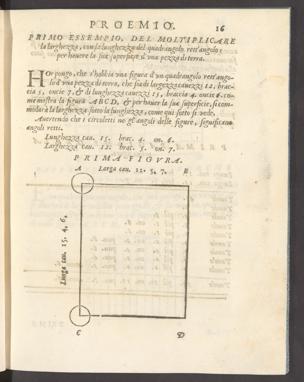 PROEMIO. 16
PRIMO ESSEMPIO, DEL MOLTIPLICARE
la larghezza, con la lunghezza del quadrangolo rett'angolo;
per hauere la sua superficie d'una pezza di terra.
HOr pongo, che s'habbia vna figura d'un quadrangolo rett'ango-
lo d'vna pezza di terra, che sia di larghezza cauezzi 12. brac-
cia 3. oncie 7. & di lunghezza cauezzi 15. braccia 4. oncie 6. co-
me mostra la figura ABCD, & per hauer la sua superficie, si commo-
dare la larghezza sotto la lunghezza, come qui sotto si vede.
Auertendo che i circoletti ne gl'angoli delle figure, significano
angoli retti.
Lunghezza cau. 15. brac. 4. on. 6.
Larghezza cau. 12. brac. 3. on. 7.
PRIMA FIGVRA.
A Larga cau. 12. 3. 7. B
Lunga cau. 15. 4. 6.
C D